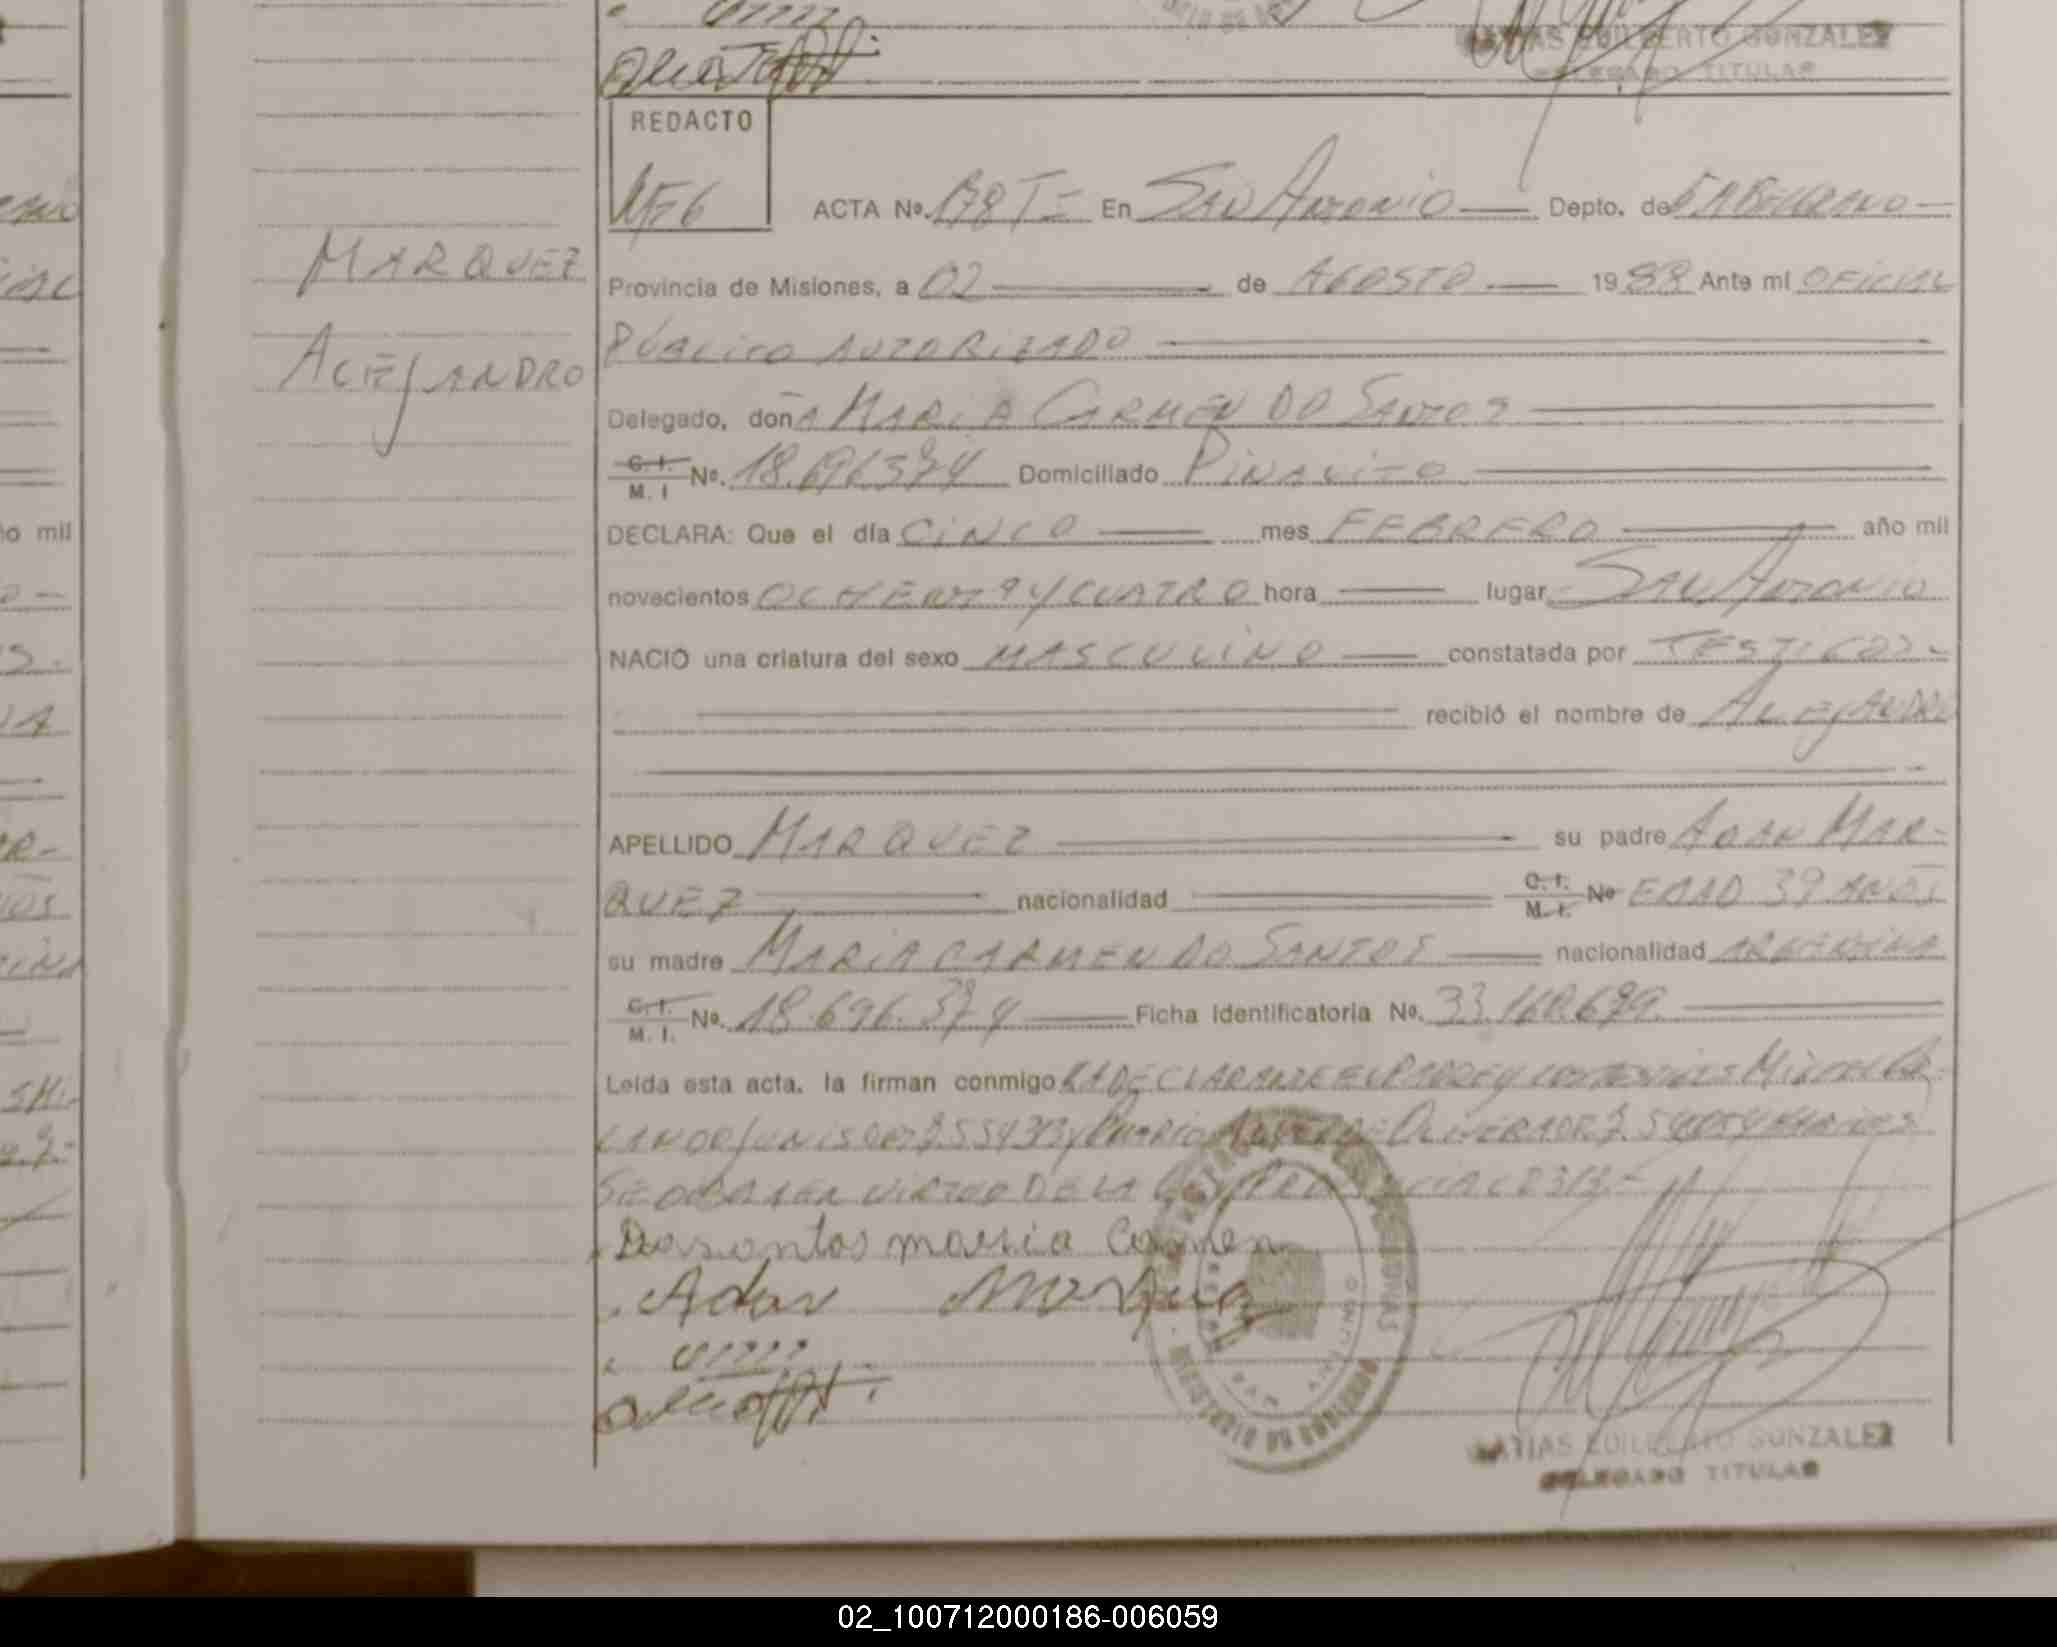 MATIAS EDILBERTO GONZALEZ
DELEGADO TITULAR
REDACTO
ACTA No. En SAN ANTONIO Depto. de
MARQUEZ
ALEJANDRO
Provincia de Misiones, a 02 de AGOSTO 1988 Ante mi OFICIAL
PÚBLICO AUTORIZADO
Delegado, doñA MARIA CARMEN DO SANTOS
C. I. M. I No. 18.696.374 Domiciliado PINALITO
DECLARA: Que el día CINCO mes FEBRERO año mil
novecientos OCHENTA Y CUATRO hora lugar SAN ANTONIO
NACIO una criatura del sexo MASCULINO constatada por TESTIGOS
recibió el nombre de ALEJANDRO
APELLIDO MARQUEZ su padre ADAN MAR-
QUEZ nacionalidad C. I. M. I. No EDAD 39 AÑOS
su madre MARIA CARMEN DO SANTOS nacionalidad ARGENTINA
C. I. M. I. No. 18.696.374 Ficha Identificatoria No. 33.160.679.
Leída esta acta, la firman conmigo LA DECLARANTE EL PADRE Y LOS TESTIGOS
VIRTUD DE LA
Dosantos maria Carmen
Adan Marquez
MATIAS EDILBERTO GONZALEZ
DELEGADO TITULAR
año mil
02_100712000186-006059